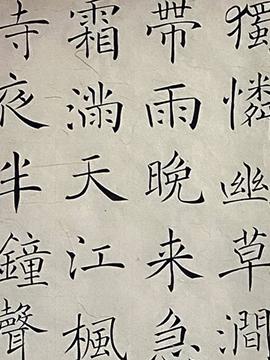 獨憐幽草澗
帶雨晚来急
霜滿天江楓
寺夜半鐘聲